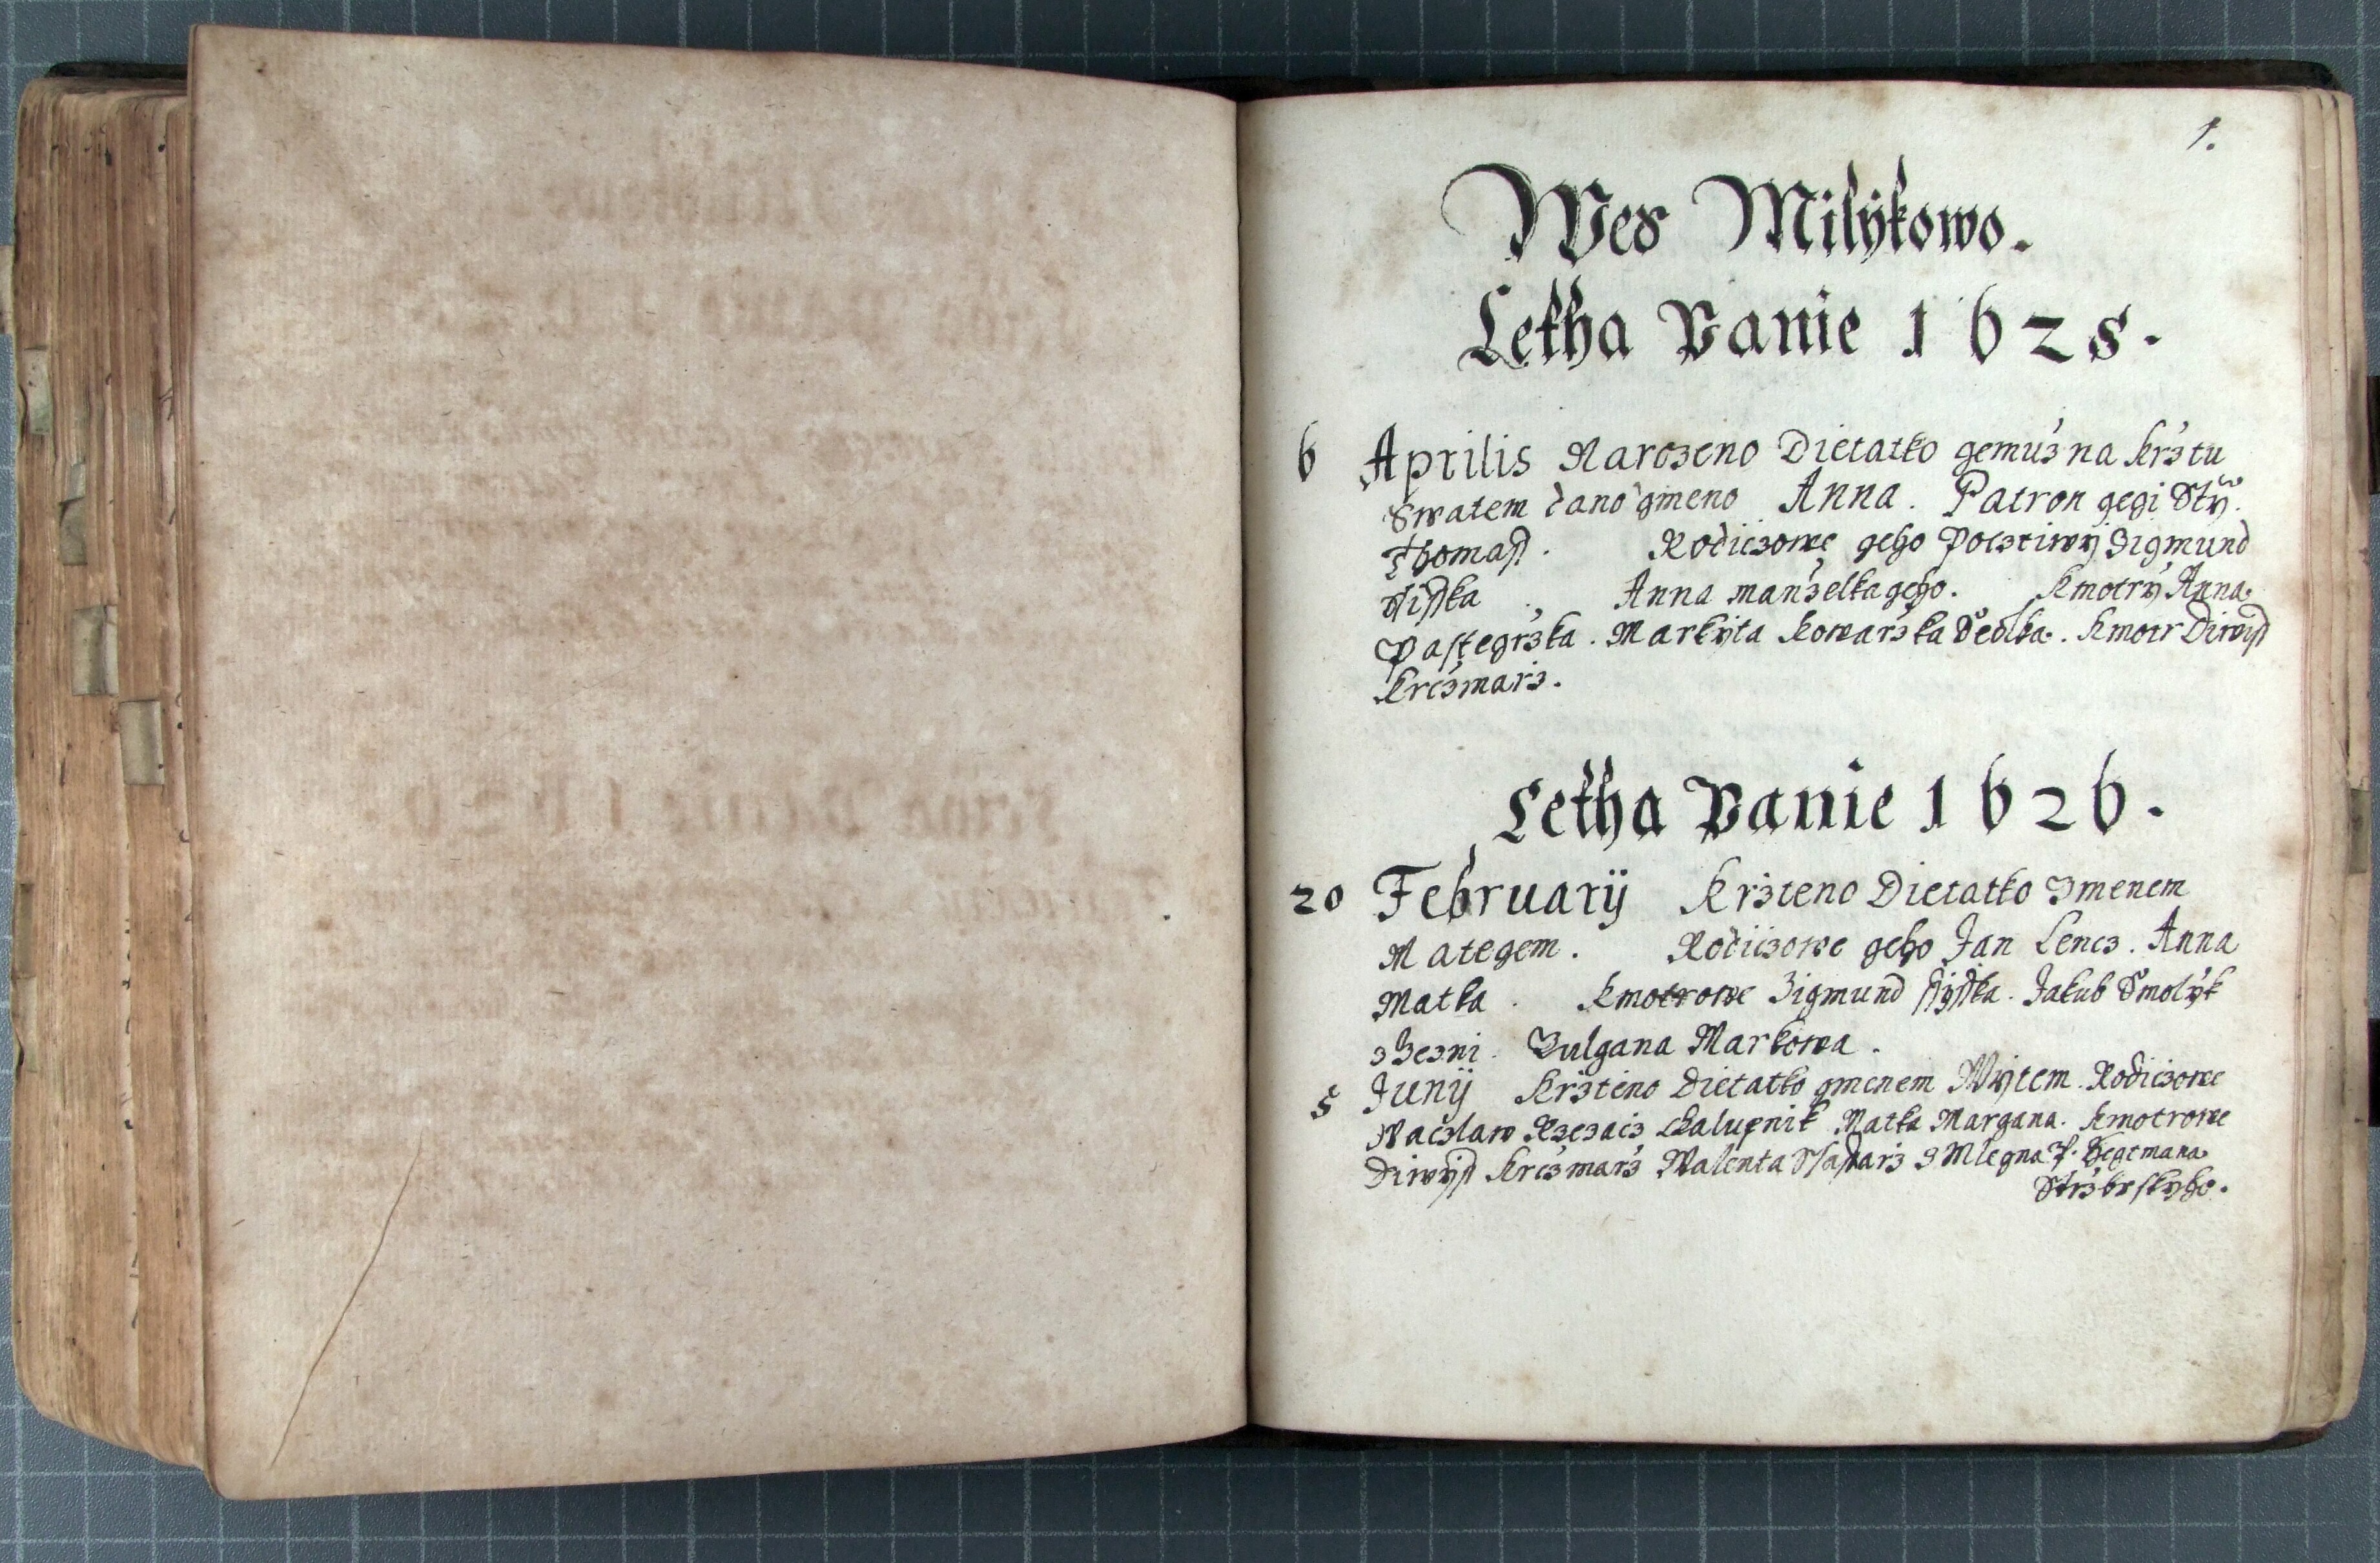 1.
Wes Milÿkowo.
Letha Panie 1625.
6 Aprilis Narozeno Dietatko gemuz na krztu
Swatem dano gmeno Anna. Patron gegi Stÿ.
Thomass. Rodiczowe geho Pocztiwÿ Zigmund
Anna manzelka geho. Kmotrÿ Anna
Pastegrzka. Markÿta Kowarzka Sedlka. Kmotr Diwiss
Krczmarz.
Letha Panie 1626.
20 Februarÿ Krzteno Dietatko Jmenem
Mategem. Rodiczowe geho Jan Lencz. Anna
Matka. Kmotrowe Zigmund Jakub Smolÿk
Zulgana Markowa.
5 Junÿ Krzteno Dietatko gmenem Wÿtem. Rodiczowe
Waczlaw Rzezacz Chalupnik Matka Margana. Kmotrowe
Diwÿss Krczmarz Walenta z Mlegna P. Hegtmana
Strzbrskÿho.